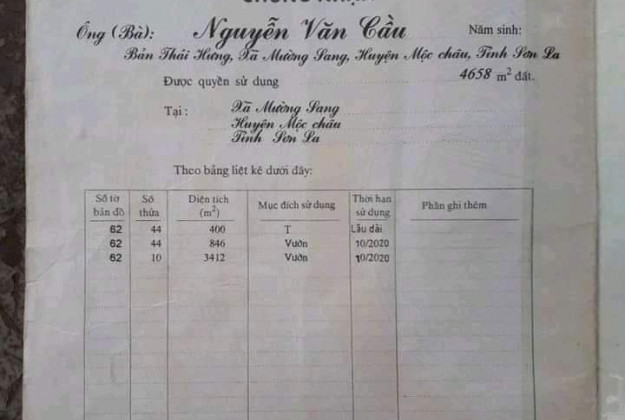 CHỨNG NHẬN
Ông (Bà): Nguyễn Văn Cầu Năm sinh:
Bản Thái Hưng, Xã Mường Sang, Huyện Mộc châu, Tỉnh Sơn La
Được quyền sử dụng 4658 m² đất.
Tại: Xã Mường Sang
Huyện Mộc châu
Tỉnh Sơn La
Theo bảng liệt kê dưới đây:
Số tờ bản đồ Số thửa Diện tích (m²) Mục đích sử dụng Thời hạn sử dụng Phần ghi thêm
62 44 400 T Lâu dài
62 44 846 Vườn 10/2020
62 10 3412 Vườn 10/2020